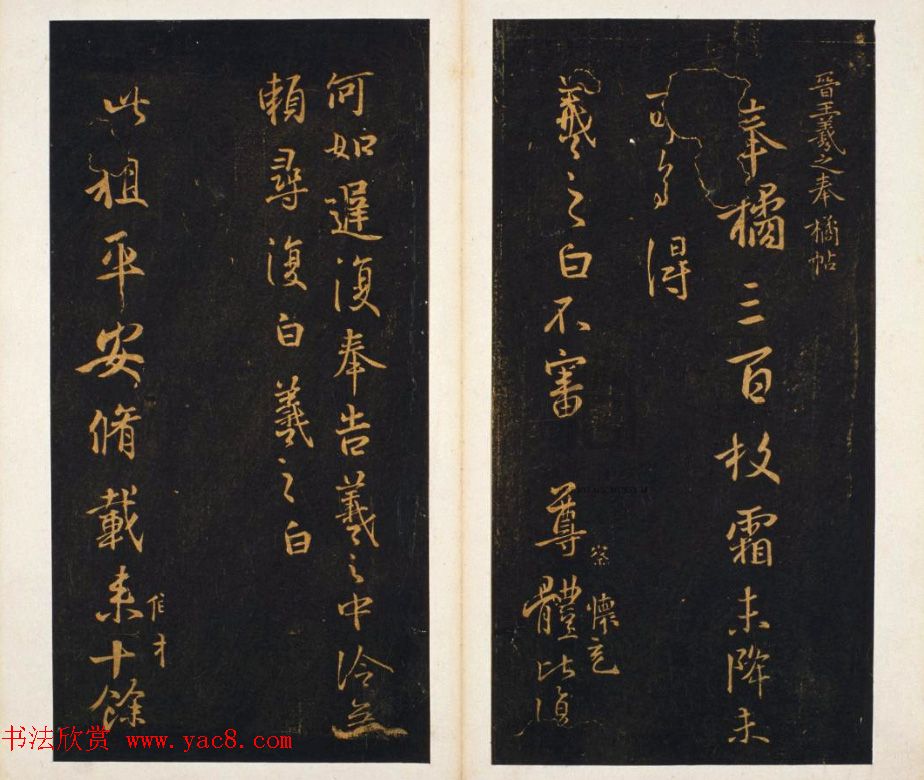 晉王羲之奉橘帖
奉橘三百枚霜未降未
可多得
羲之白不審尊體比復
察懷充
何如遲復奉告羲之中冷無
賴尋復白羲之白
此粗平安脩載来十餘
書法欣赏 www.yac8.com